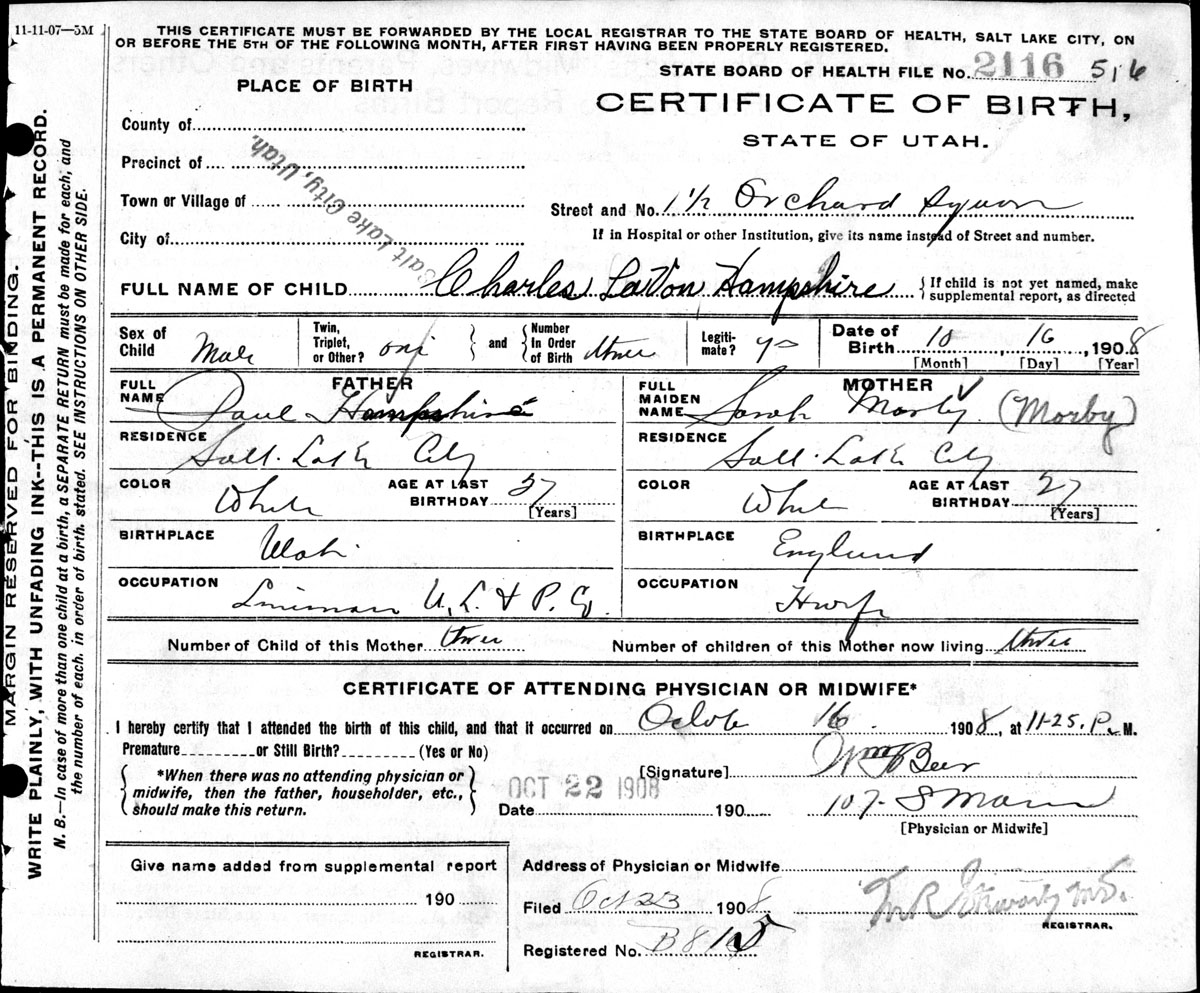 11-11-07—5M
THIS CERTIFICATE MUST BE FORWARDED BY THE LOCAL REGISTRAR TO THE STATE BOARD OF HEALTH, SALT LAKE CITY, ON
OR BEFORE THE 5TH OF THE FOLLOWING MONTH, AFTER FIRST HAVING BEEN PROPERLY REGISTERED.
STATE BOARD OF HEALTH FILE No. 2116 516
PLACE OF BIRTH
CERTIFICATE OF BIRTH,
STATE OF UTAH.
County of
Precinct of
Town or Village of
City of
Salt Lake City, Utah.
Street and No. 1 1/2 Orchard
If in Hospital or other Institution, give its name instead of Street and number.
FULL NAME OF CHILD Charles LaVon Hampshire { If child is not yet named, make
supplemental report, as directed
Sex of Child Male
Twin, Triplet, or Other? one } and { Number In Order of Birth three
Legiti- mate? yes
Date of Birth 10 16, 1908
[Month] [Day] [Year]
FATHER
FULL NAME Paul Hampshire
RESIDENCE Salt Lake City
COLOR White
AGE AT LAST BIRTHDAY
[Years]
BIRTHPLACE Utah
OCCUPATION Lineman U. L. & P. Co.
MOTHER
FULL MAIDEN NAME Sarah Morby (Morby)
RESIDENCE Salt Lake City
COLOR White
AGE AT LAST BIRTHDAY 27
[Years]
BIRTHPLACE England
OCCUPATION Hwife
Number of Child of this Mother three
Number of children of this Mother now living three
CERTIFICATE OF ATTENDING PHYSICIAN OR MIDWIFE*
I hereby certify that I attended the birth of this child, and that it occurred on Octob 16 1908, at 11-25. P. M.
Premature or Still Birth? (Yes or No)
{ *When there was no attending physician or
midwife, then the father, householder, etc.,
should make this return. }
[Signature] Wm Beer
OCT 22 1908
Date 190
107 S Main
[Physician or Midwife]
Give name added from supplemental report
190
REGISTRAR.
Address of Physician or Midwife
Filed Oct 23 1908
REGISTRAR.
Registered No. B 815
MARGIN RESERVED FOR BINDING.
WRITE PLAINLY, WITH UNFADING INK--THIS IS A PERMANENT RECORD.
N. B.—In case of more than one child at a birth, a SEPARATE RETURN must be made for each, and
the number of each. in order of birth. stated. SEE INSTRUCTIONS ON OTHER SIDE.